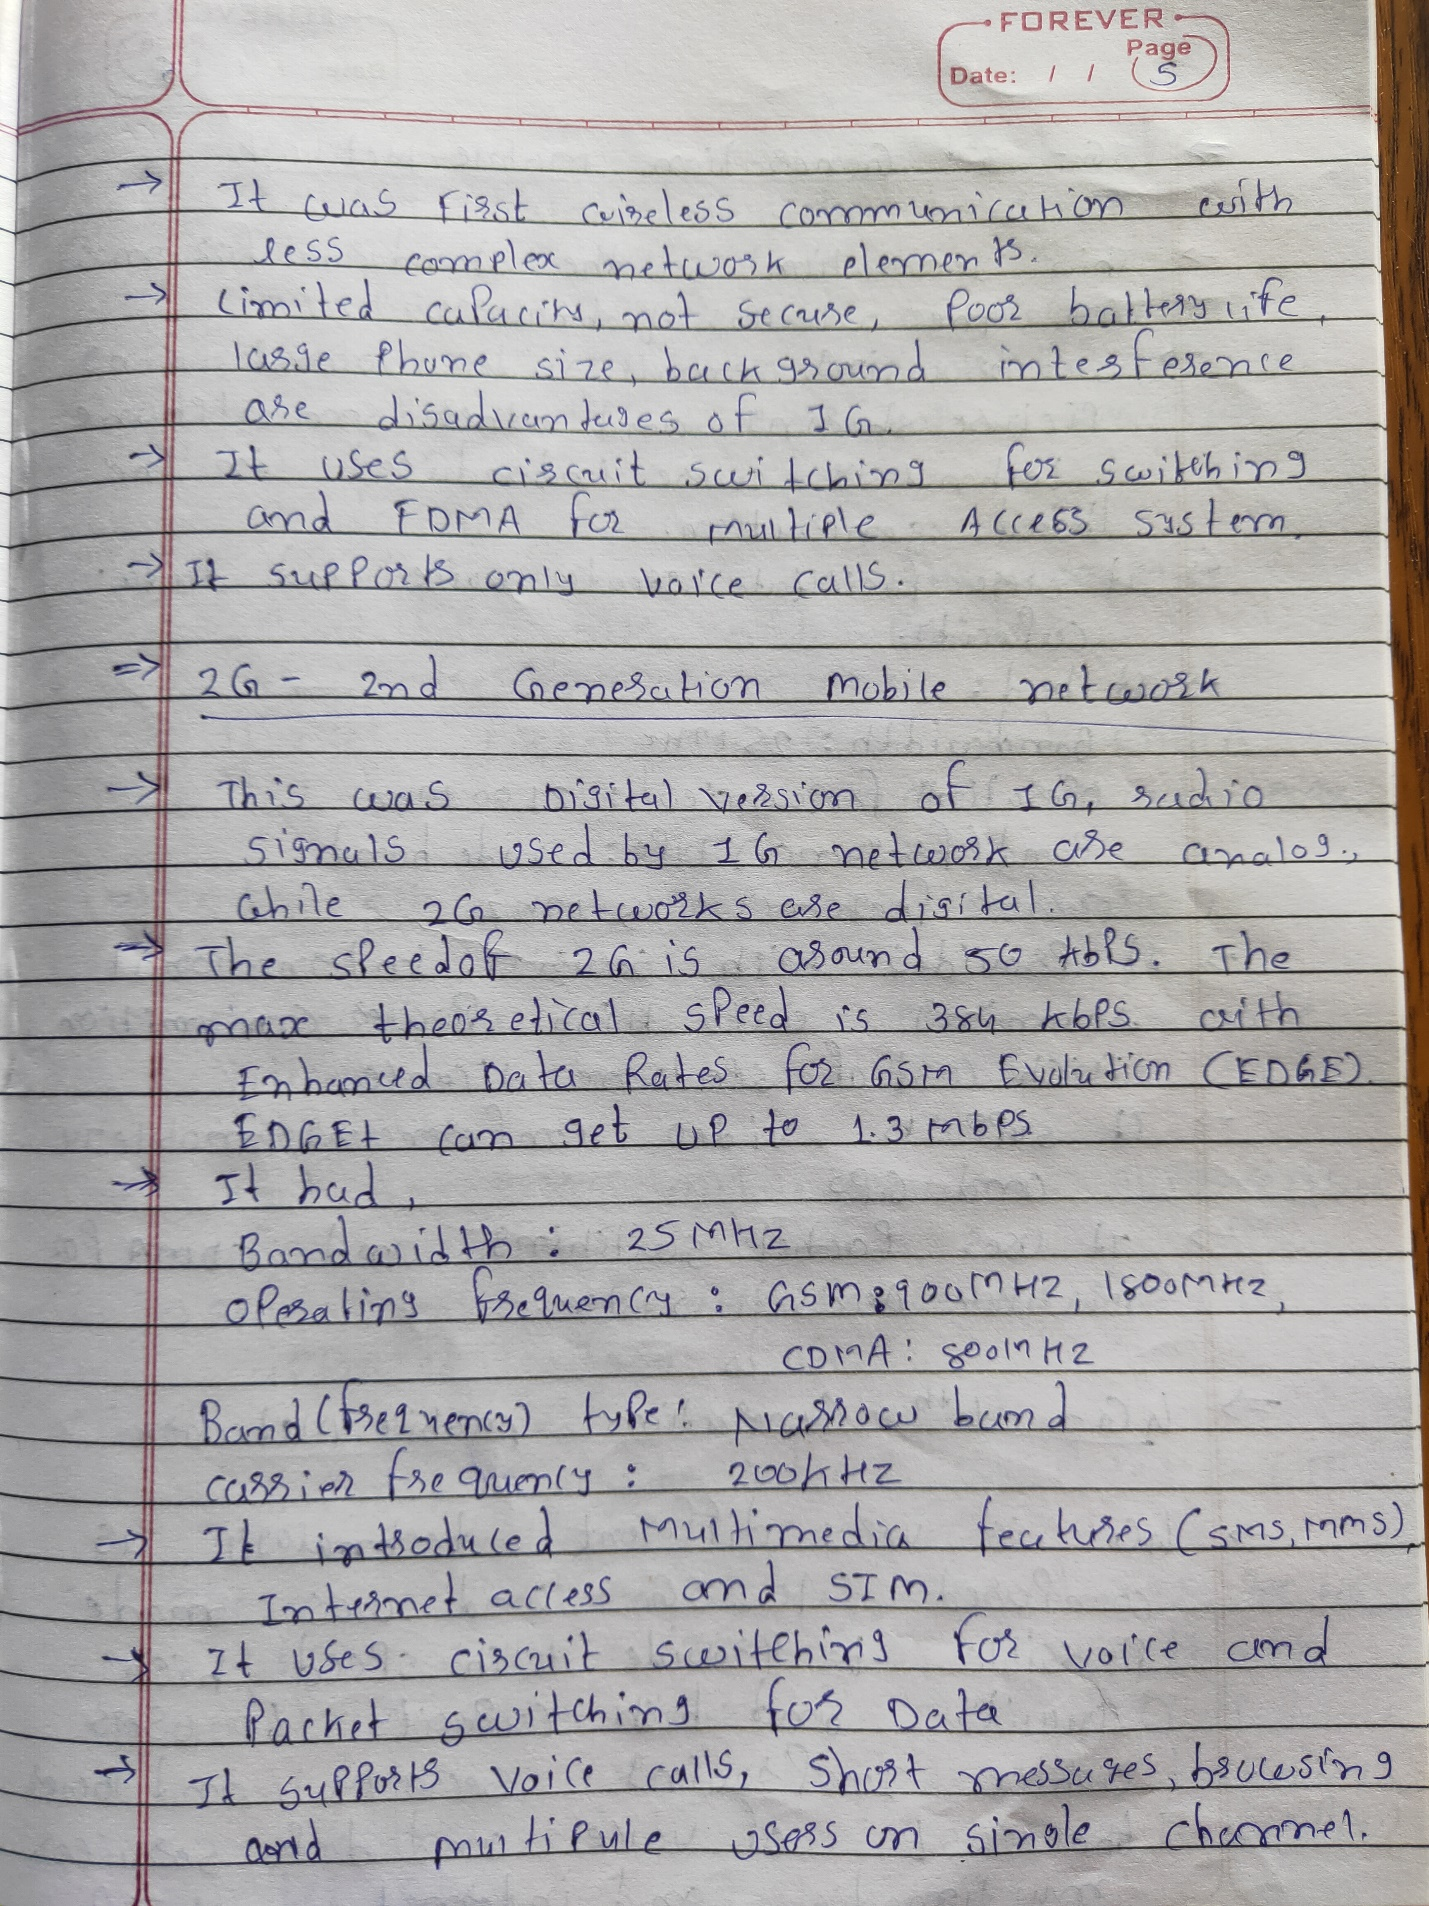 FOREVER
Page
Date: / / 5
→ It was First wireless communication with
less complex network elements.
→ Limited capacity, not secure, Poor battery life,
large Phone size, background interference
are disadvantages of 1G.
→ It uses circuit switching for switching
and FDMA for multiple Access system.
→ It supports only voice calls.
⇒ 2G - 2nd Generation mobile network
→ This was Digital version of 1G, radio
signals used by 1G network are analog,
while 2G networks are digital.
→ The speed of 2G is around 50 kbps. The
max theoretical speed is 384 kbps with
Enhanced Data Rates for GSM Evolution (EDGE)
EDGE+ can get up to 1.3 mbps
→ It had,
Bandwidth : 25 MHz
Operating frequency : GSM: 900MHz, 1800MHz,
CDMA: 800MHz
Band (frequency) type: Narrow band
carrier frequency : 200KHZ
→ It introduced Multimedia features (SMS, MMS),
Internet access and SIM.
→ It uses circuit switching for voice and
Packet switching for Data
→ It supports voice calls, short messages, browsing
and multipule users on single channel.